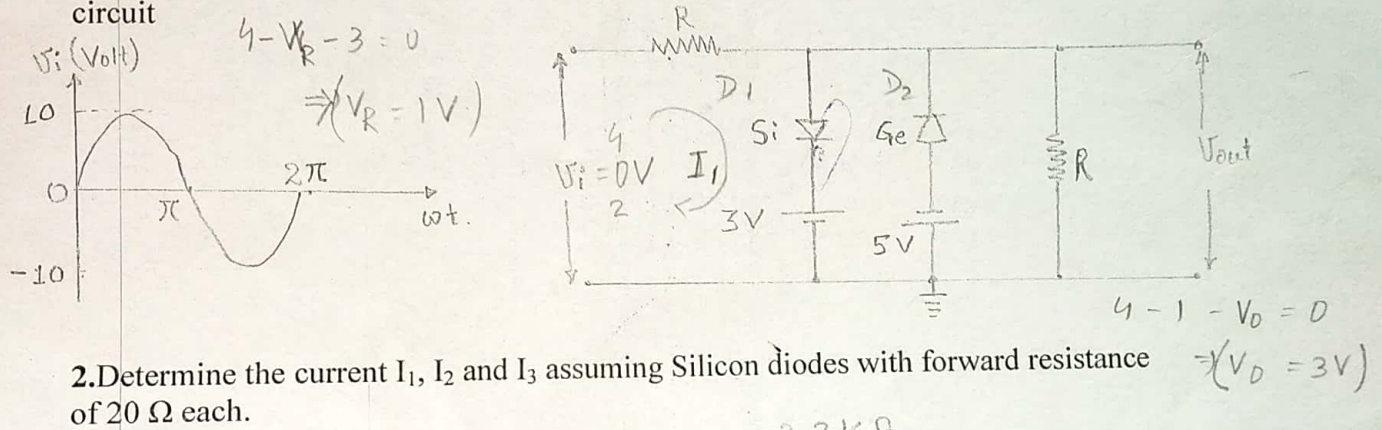 circuit
Vi (Volt)
10
0
-10
π
2π
ωt.
4-VR-3=0
⇒(VR=1V)
R
D1
Si
D2
Ge
4
Vi=0V
2
I1
3V
5V
R
Vout
4-1-V0=0
⇒(V0=3V)
2.Determine the current I1, I2 and I3 assuming Silicon diodes with forward resistance
of 20 Ω each.